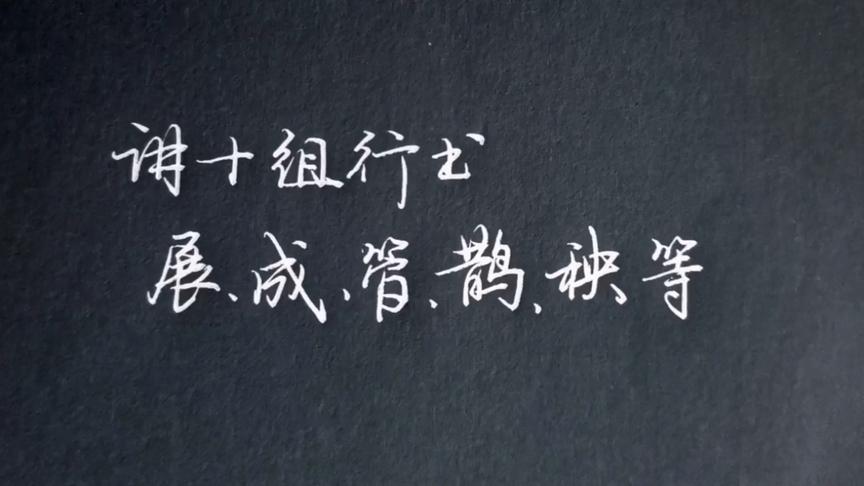 讲十组行书
展、成、管、鹊、秧等